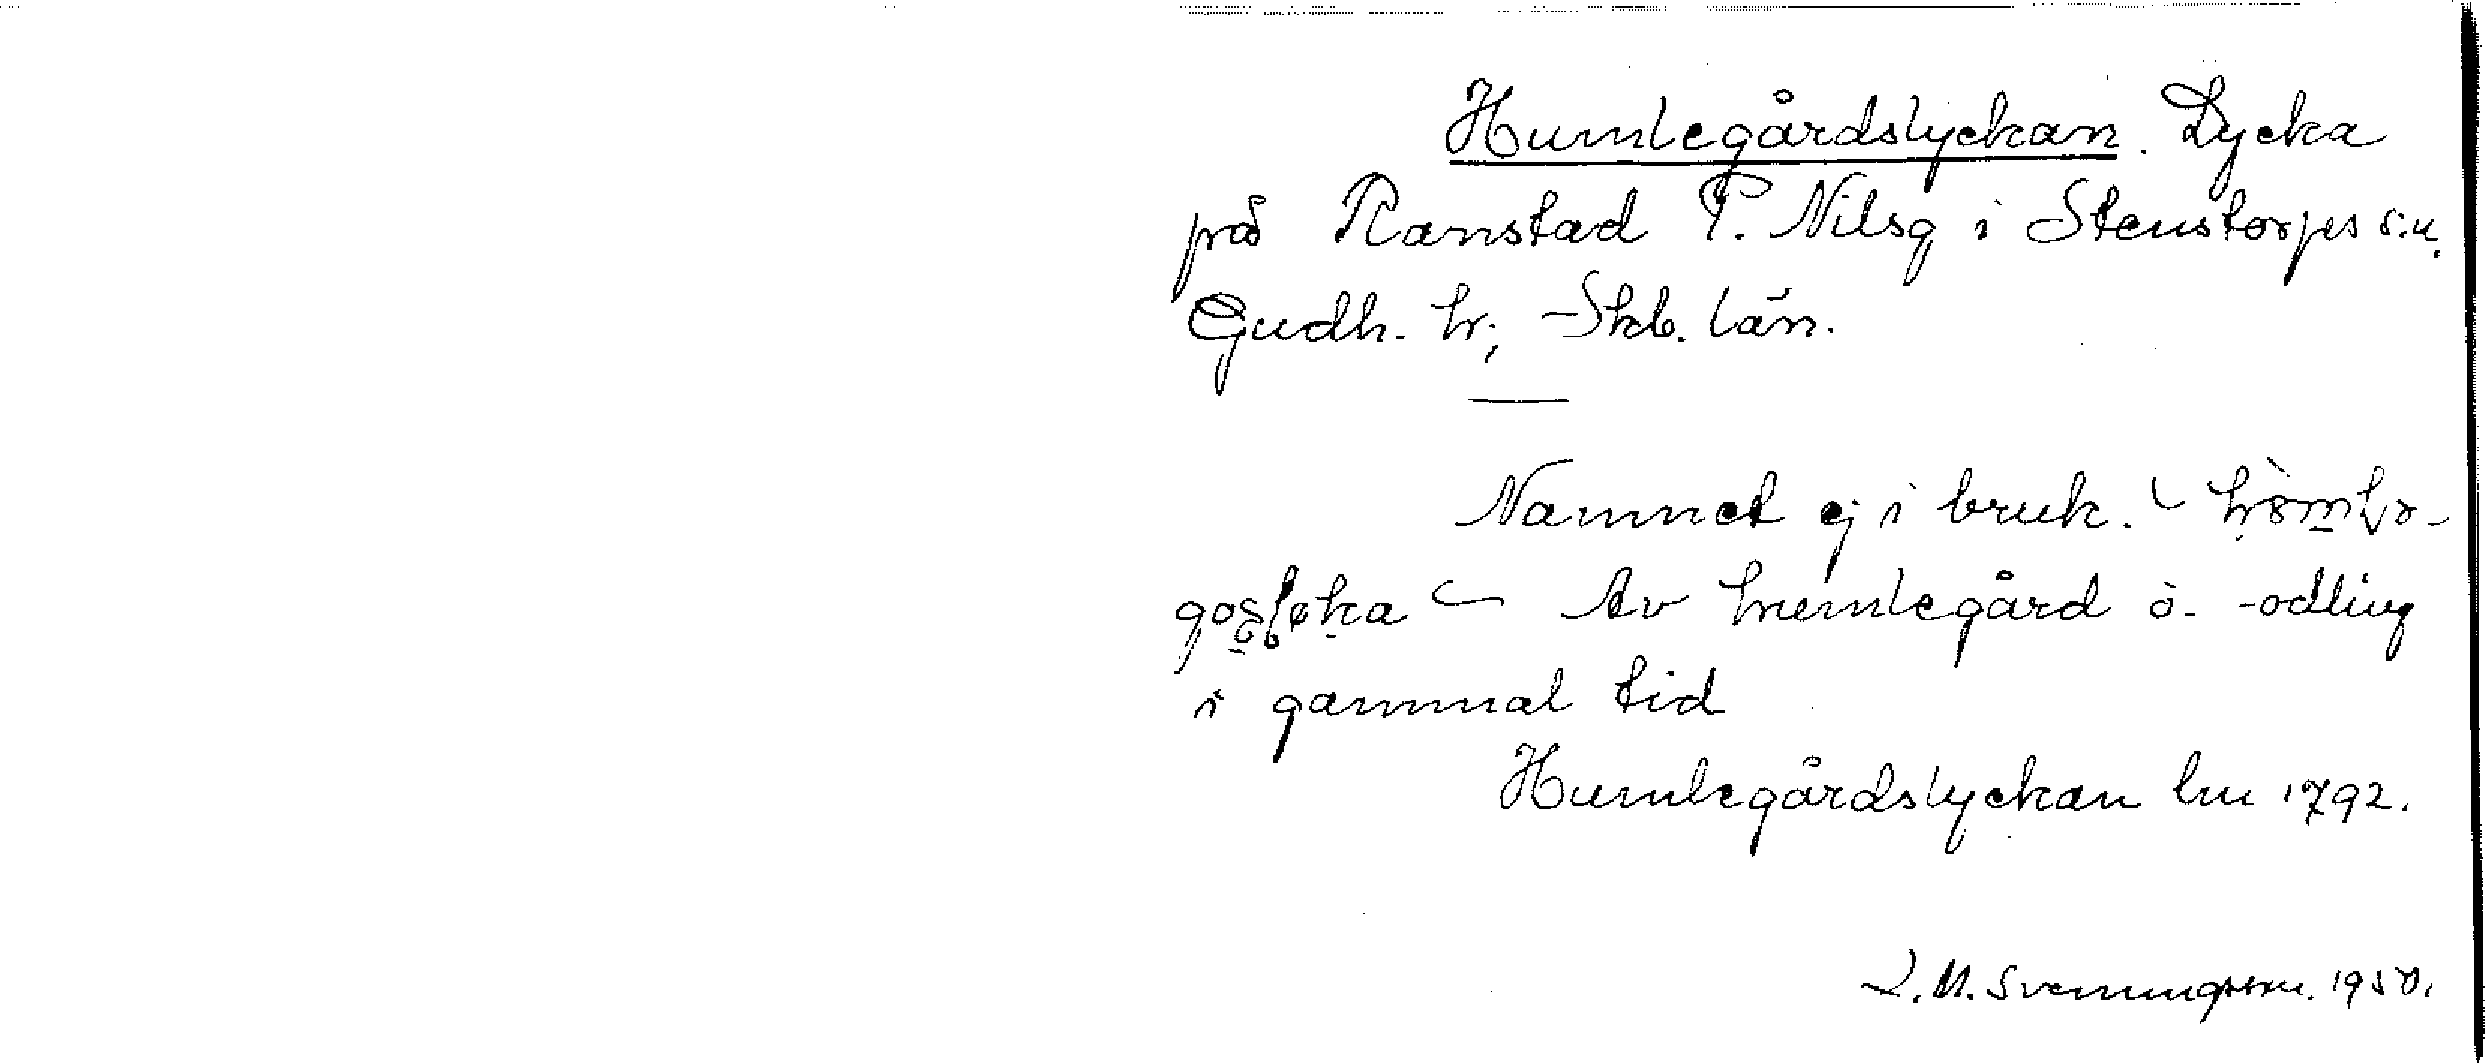 Humlegårdslyckan. Lycka
på Ranstad P. Nilsg i Stenstorps sn.
Gudh. hr, Skb. län.
Namnet ej i bruk.
Av humlegård o. -odling
i gammal tid
Humlegårdslyckan lm 1792.
1950.